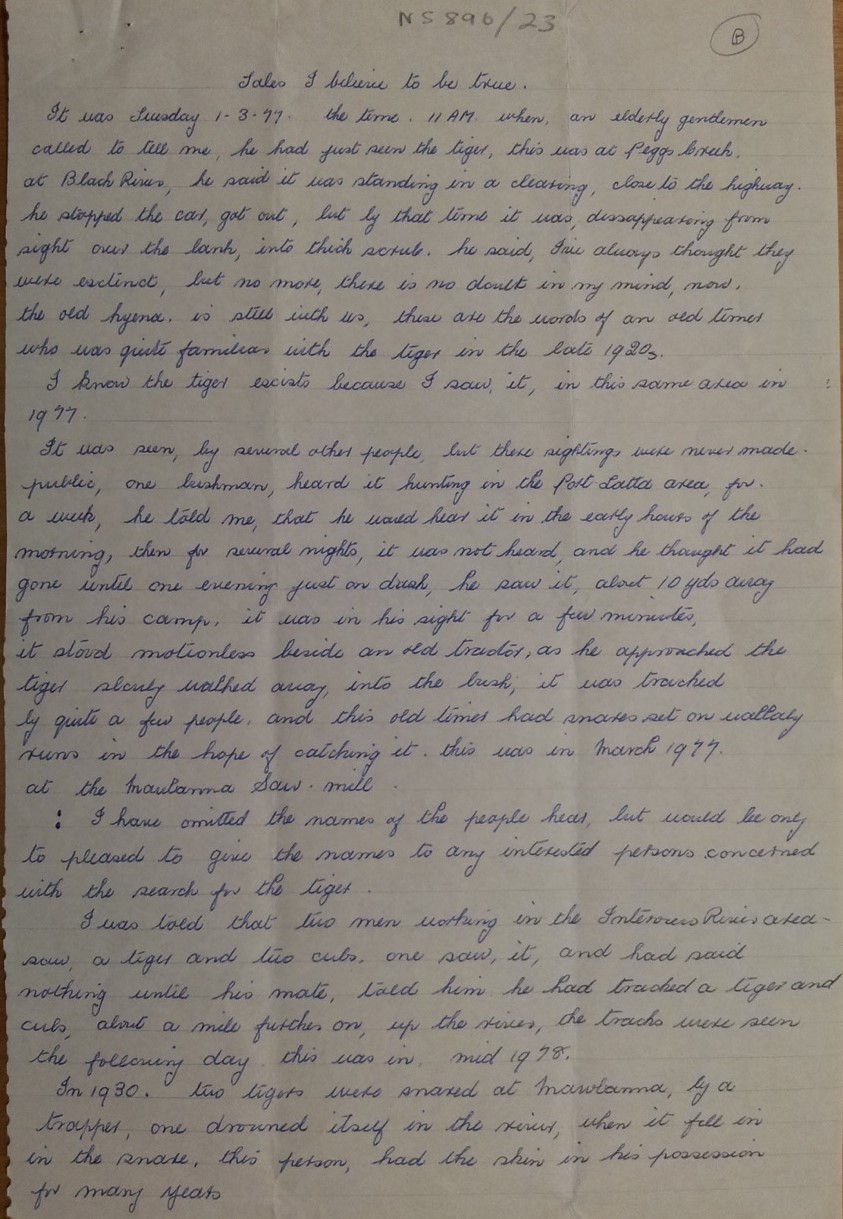 NS896/23
B
Tales I believe to be true.
It was Tuesday 1-3-77. the time. 11 AM. when, an elderly gentlemen
called to tell me, he had just seen the tiger, this was at Peggs Creek.
at Black River, he said it was standing in a clearing, close to the highway.
he stopped the car, got out, but by that time it was, dissappearing from
sight over the bank, into thick scrub. he said, I've always thought they
were esctinct, but no more, there is no doubt in my mind, now.
the old hyena. is still with us, these are the words of an old timer
who was quite familiar with the tiger in the late 1920s.
I know the tiger escists because I saw, it, in this same area in
1977.
It was seen, by several other people, but these sightings were never made.
public, one bushman, heard it hunting in the Port Latta area, for.
a week, he told me, that he would hear it in the early hours of the
morning, then for several nights, it was not heard, and he thought it had
gone until one evening just on dusk, he saw it, about 10 yds away
from his camp. it was in his sight for a few minutes,
it stood motionless beside an old tractor, as he approached the
tiger slowly walked away, into the bush, it was tracked
by quite a few people. and this old timer had snares set on wallaby
runs in the hope of catching it. this was in March 1977.
at the Mawbanna Saw. mill.
: I have omitted the names of the people hear, but would be only
to pleased to give the names to any interested persons concerned
with the search for the tiger.
I was told that two men working in the River area-
saw, a tiger and two cubs. one saw, it, and had said
nothing until his mate, told him he had tracked a tiger and
cubs, about a mile further on, up the river, the tracks were seen
the following day. this was in, mid 1978.
In 1930. two tigers were snared at Mawbanna, by a
trapper, one drowned itself in the river, when it fell in
in the snare. this person, had the skin in his possession
for many years